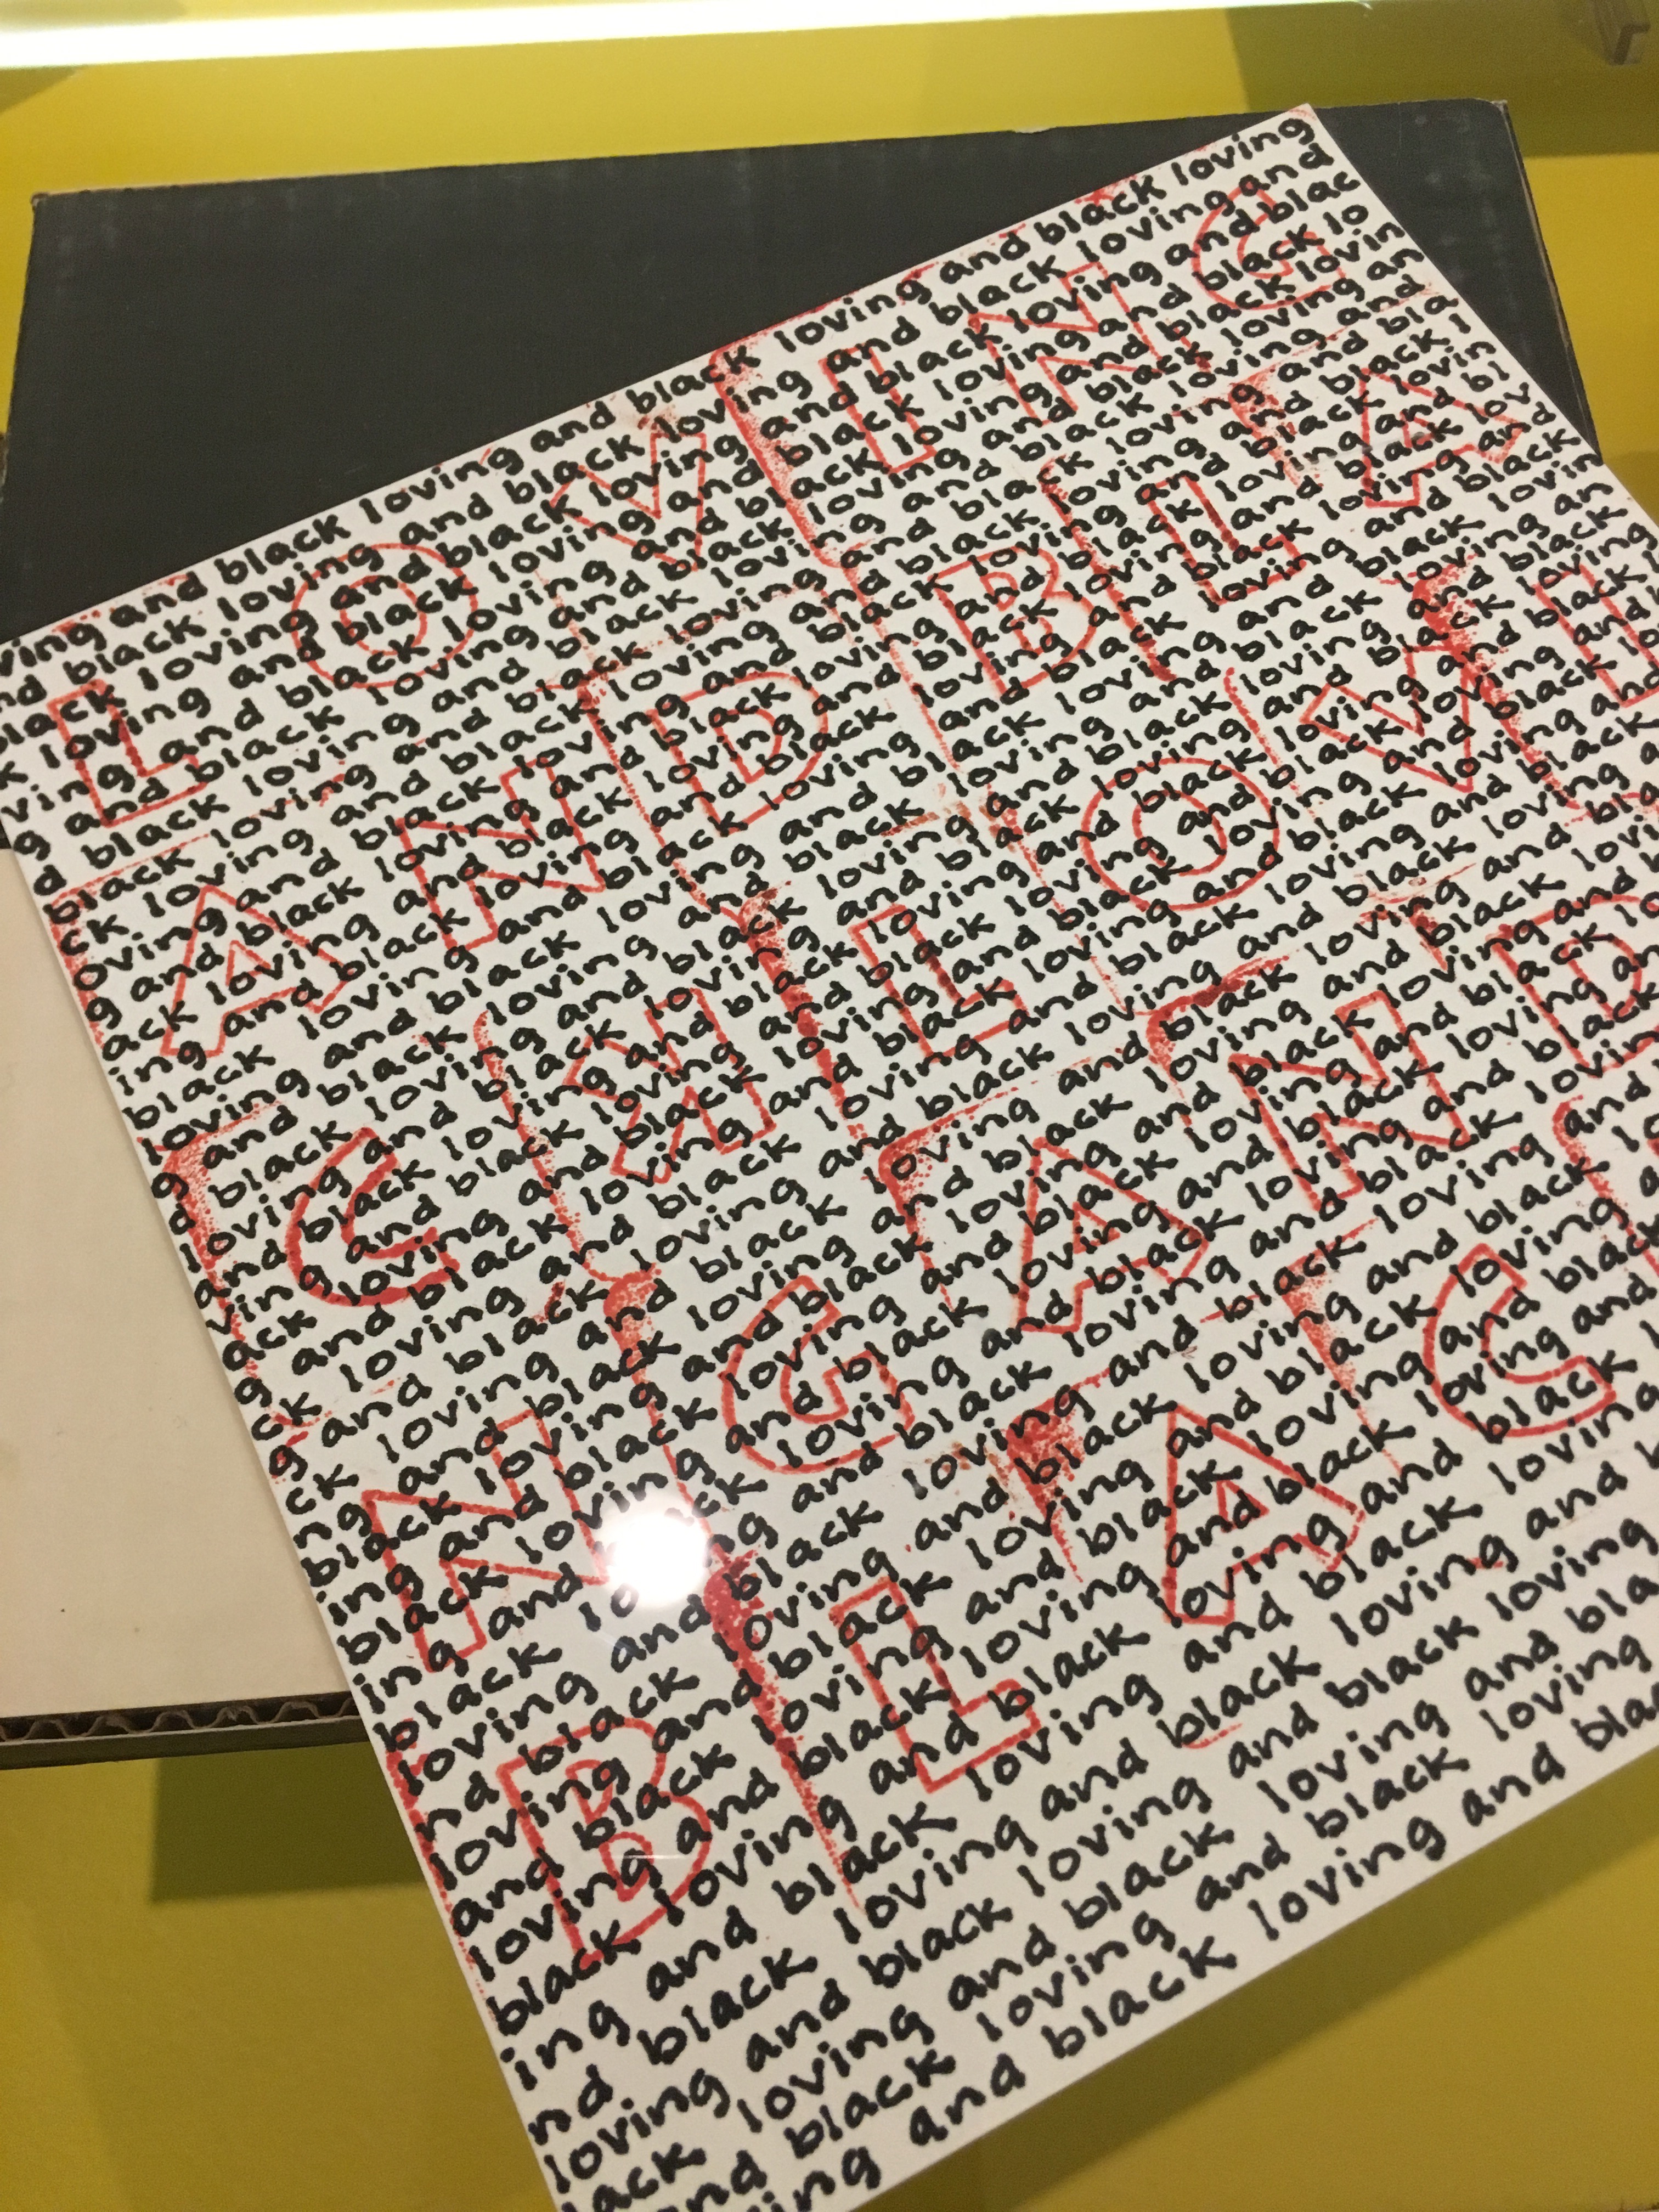 ving and black loving and black loving and black loving and black loving
nd black loving and black loving and black loving and
black loving and black loving and black loving and blac
k loving and black loving and black loving and black lo
ving and black loving and black loving and black lovin
g and black loving and black loving and black loving an
d black loving and black loving and black loving and
black loving and black loving and black loving and bla
ck loving and black loving and black loving and black l
oving and black loving and black loving and black lovin
g and black loving and black loving and black loving and bl
ack loving and black loving and black loving and black lov
ing and black loving and black loving and black loving and
black loving and black loving and black loving and black
loving and black loving and black loving and black lovin
g and black loving and black loving and black loving an
d black loving and black loving and black loving and black
loving and black loving and black loving and black loving
and black loving and black loving and black loving and black l
ving and black loving and black loving and black
ack loving and black loving and black loving and
g and black loving and black loving and black
ck loving and black loving and black loving
g and black loving and black loving and black
ck loving and black loving and black loving
ng and black loving and black loving and
black loving and black loving and black
ing and black loving and black loving
black loving and black loving and black
ing and
black
loving and black loving and black loving
nd black loving and black loving and
loving and black loving and black
and black loving and black loving
loving and black loving and black
black loving and black loving
ing and black loving and black loving
nd black loving and black loving and
loving and black loving and black loving
lack loving and black loving and bla
nd black loving and black loving
ing and black loving and bla
LOVING
AND BLA
CK LOVI
NG AND
BLAC